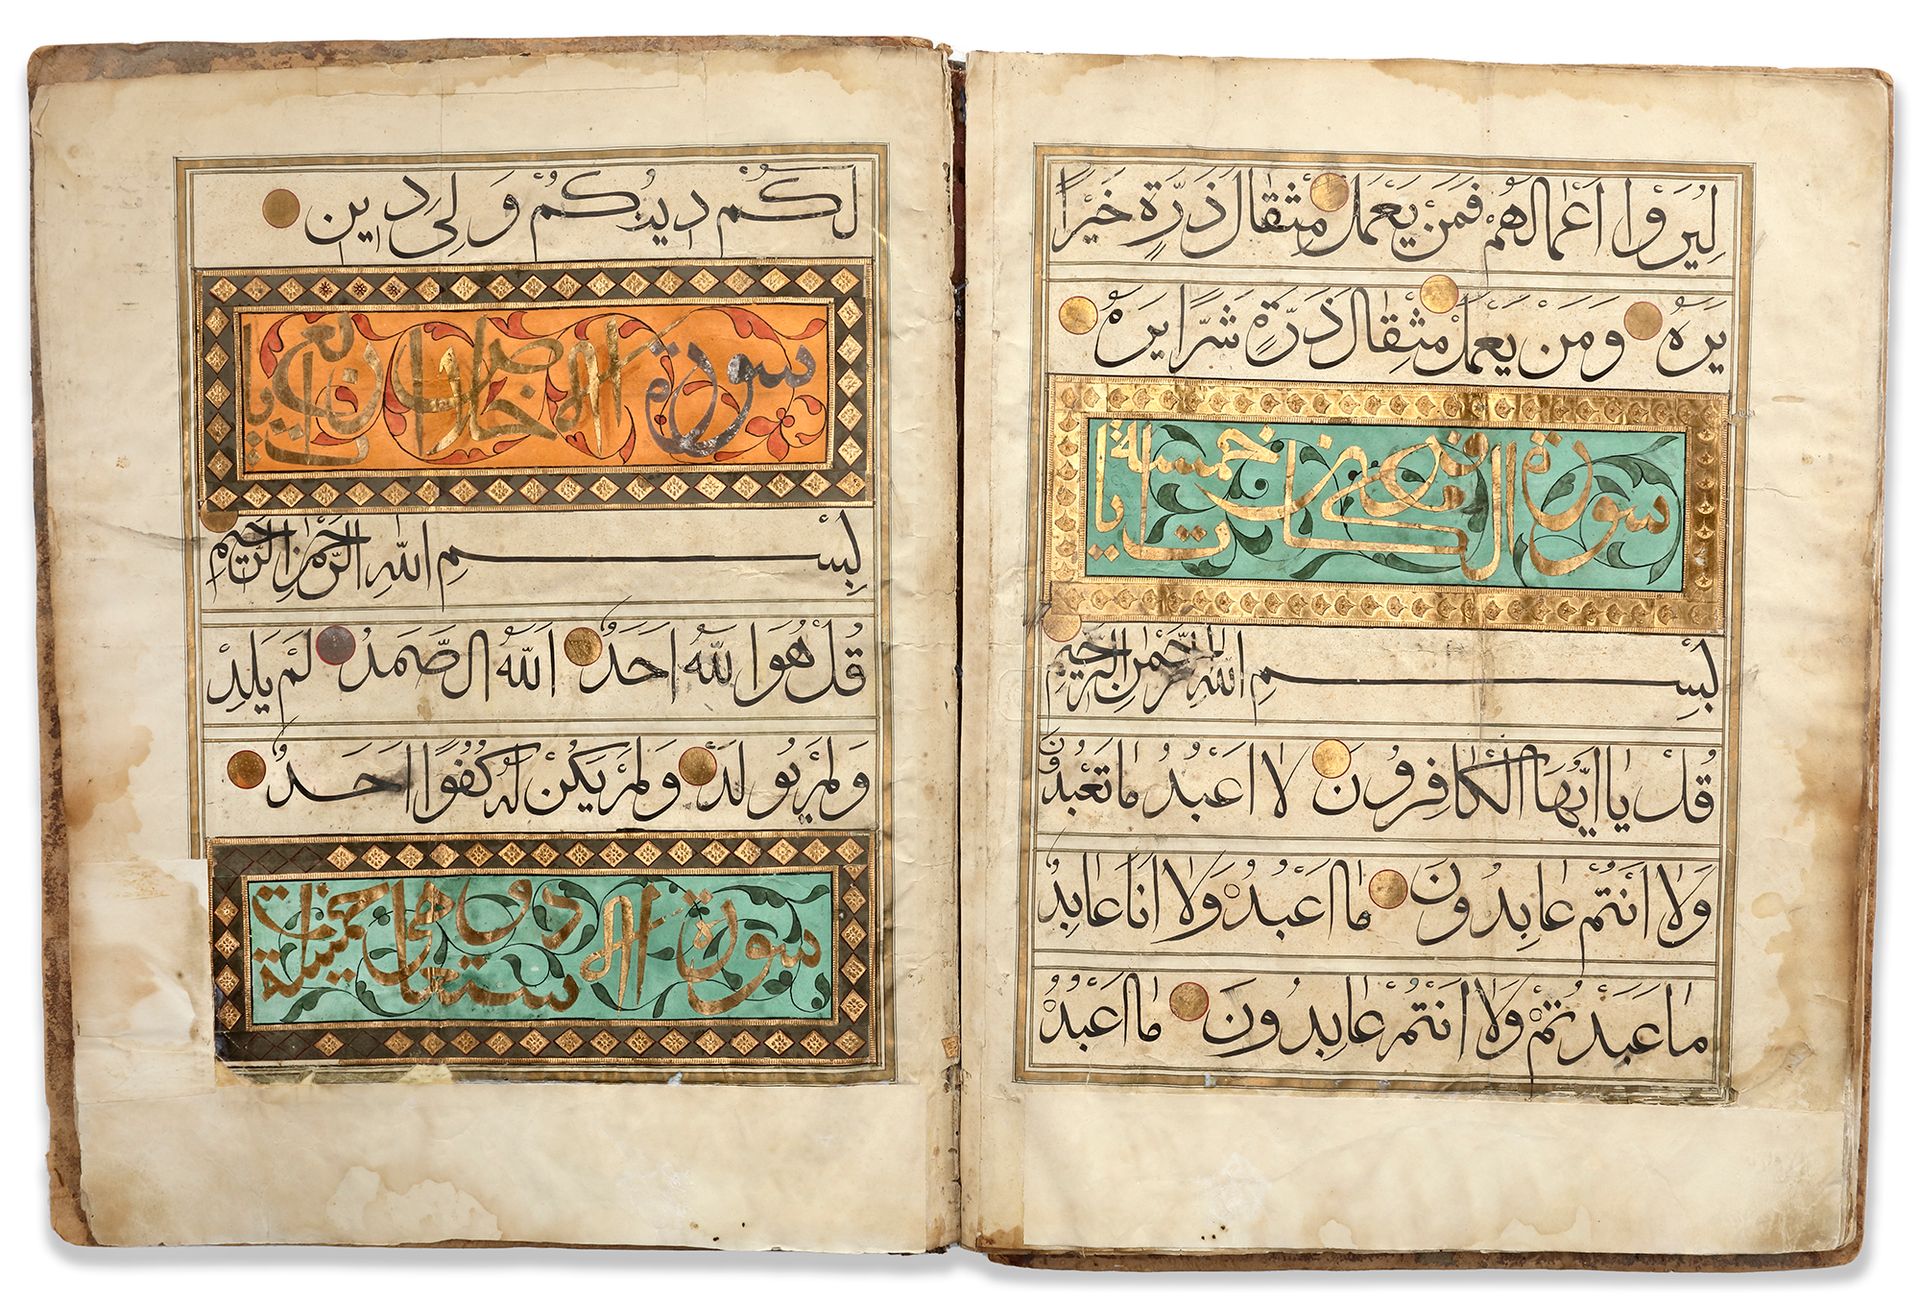 لِيُرَوْا اَعْمَالَهُمْ فَمَنْ يَعْمَلْ مِثْقَالَ ذَرَّةٍ خَيْرًا
يَرَهُ وَمَنْ يَعْمَلْ مِثْقَالَ ذَرَّةٍ شَرًّا يَرَهُ
سورة خمسة ايات
بِسْمِ اللهِ الرَّحْمٰنِ الرَّحِيمِ
قُلْ يَا اَيُّهَا الْكَافِرُونَ لَا اَعْبُدُ مَا تَعْبُدُونَ
وَلَا اَنْتُمْ عَابِدُونَ مَا اَعْبُدُ وَلَا اَنَا عَابِدٌ
مَا عَبَدْتُمْ وَلَا اَنْتُمْ عَابِدُونَ مَا اَعْبُدُ
لَكُمْ دِينُكُمْ وَلِيَ دِينِ
سورة الاخلاص
بِسْمِ اللهِ الرَّحْمٰنِ الرَّحِيمِ
قُلْ هُوَ اللَّهُ اَحَدٌ اَللَّهُ الصَّمَدُ لَمْ يَلِدْ
وَلَمْ يُولَدْ وَلَمْ يَكُنْ لَهُ كُفُوًا اَحَدٌ
سورة